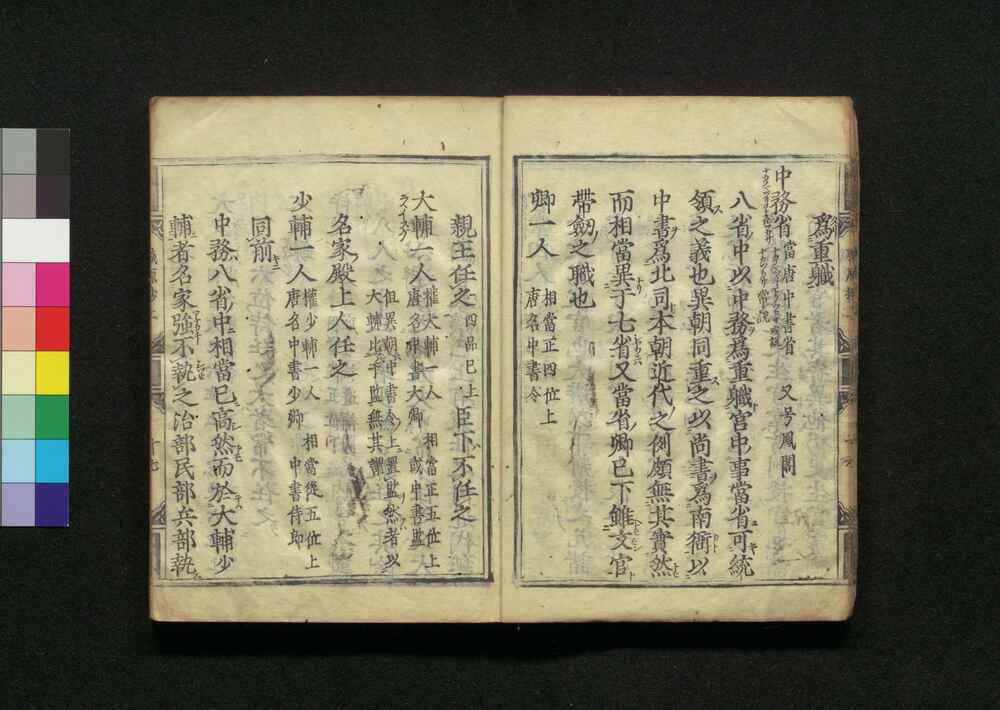 為重職
中務省 當唐中書省 又号鳳閣
八省中以中務為重職官中事當省可統
領之義也異朝同重之以尚書為南衙以
中書為北同本朝近代之例頗無其實然
而相當異于七省又當省卿已下雖文官
帶劔之職也
卿一人 相當正四位上
唐名中書令
親王任之 四品已上 臣下不任之
大輔一人 權大輔一人 相當正五位上
唐名中書大卿 或中書監
但異朝中書令上置監然者以
大輔比于監無其謂
名家殿上人任之
少輔一人 權少輔一人 相當從五位上
唐名中書少卿 中書侍郎
同前
中務八省中相當已高然而於大輔少
輔者名家強不執之治部民部兵部執